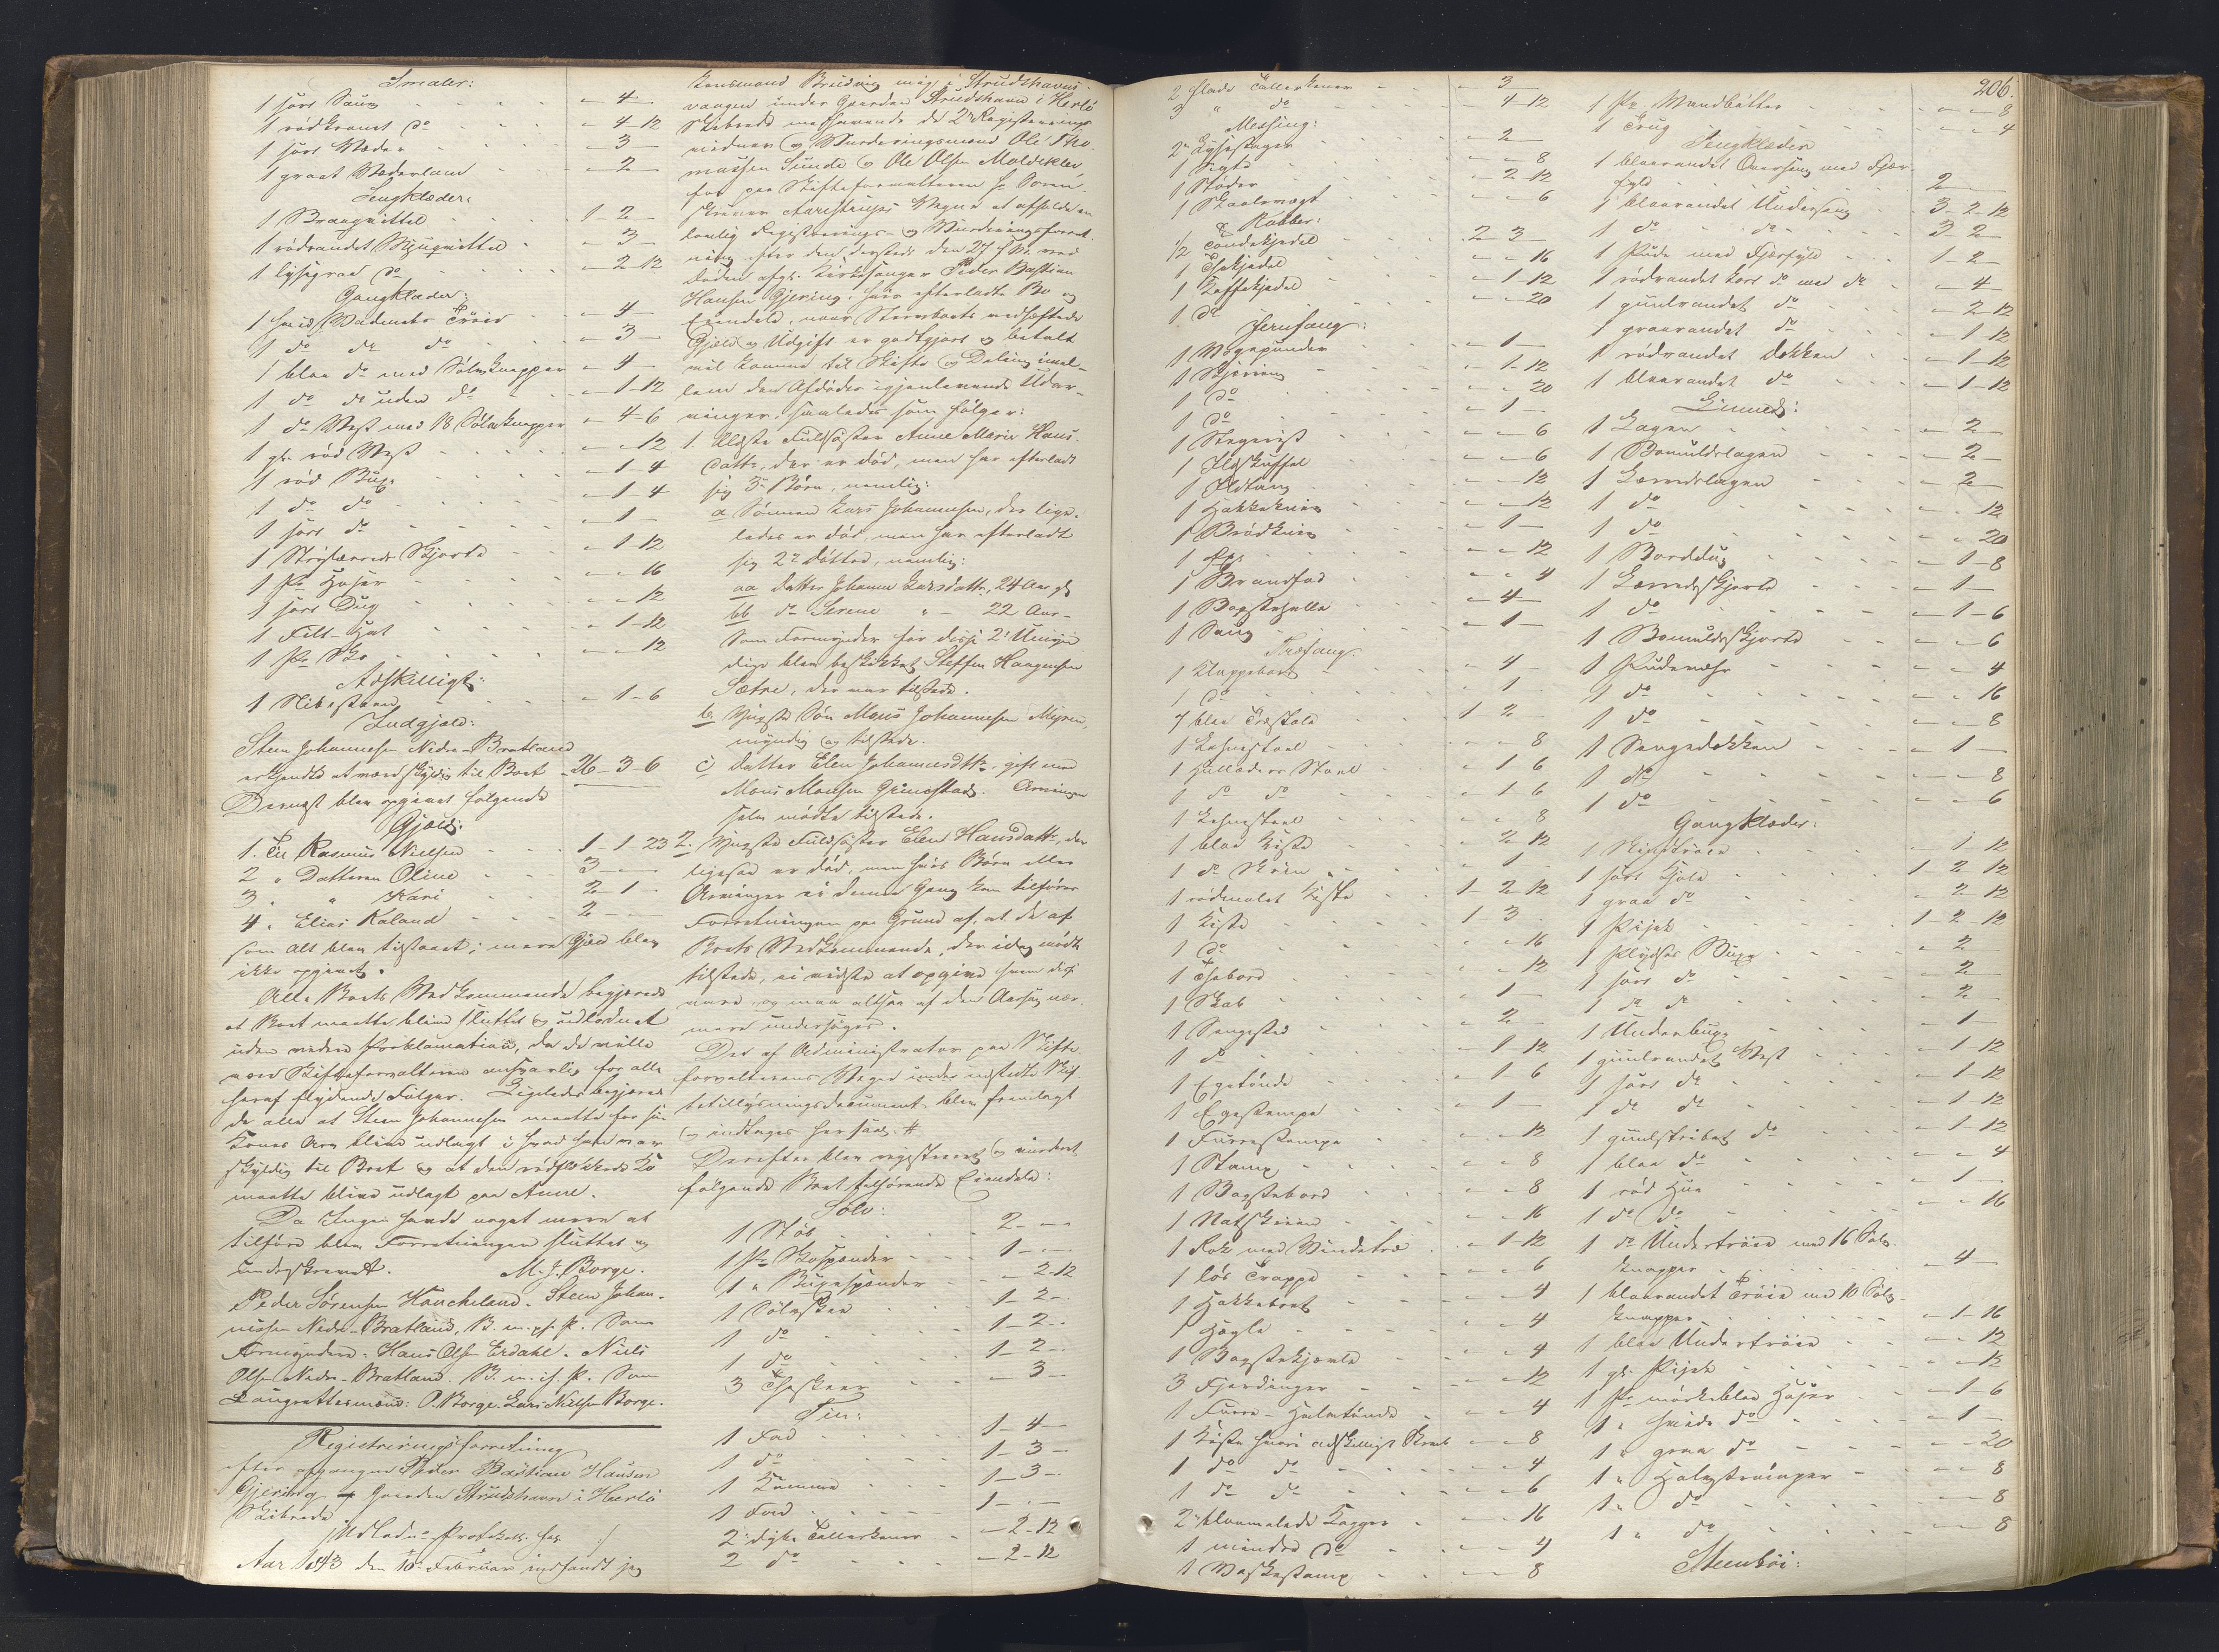 Smaler:
1 sort Sau - 4 -
1 rødkranset do - 4-12
1 sort Væder - 3 -
1 graat Væderlam - 2 -
Sengklæder:
1 Brangvittel 1-2-
1 rødrandet - 3 -
1 lysegraa do - 2-12
Gangklæder:
1 hvid Vadmels Trøie - 4 -
1 do do do - 3 -
1 blaa do med Sølvknapper - 4 -
1 do do uden do - 1-12
1 do Vest med 18 Sølvknapper - 4-6
1 gl. rød Vest - - 12
1 rød Buxe - 1-4
1 do do - 1-4
1 sort do - 1 -
1 Skjorte - 1-12
1 Pr Hoser - - 16
1 sort Dug - - 12
1 Filt-Hat - 1-12
1 Pr Sko - - 12
Adskilligt:
1 Slibesteen - 1-6
Indgjæld:
Steen Johannesen Nedre-Bratland
erkjendte at være skyldig til Boet - 26-3-6
Dernæst blev opgivet følgende
Gjæld:
1. Til Rasmus Nielsen 1-1-23
2 " Datteren Oline 3 - -
3 " " Kari 2-1-
4. Elias Kaland 2 - -
som alt blev tilstaaet; mere Gjæld blev
ikke opgivet.
Alle Boets Vedkommende begjærede
at Boet maatte blive sluttet og udloddet
uden videre Proklamation, da de ville
være Skifteforvalteren ansvarlig for alle
heraf flydende Følger. Ligeledes begjærede
de alle at Steen Johannesen maatte for sin
Kones Arv blive udlagt i hvad han var
skyldig til Boet og at den Ko
maatte blive udlagt paa Anne.
Da Ingen havde noget mere at
tilføre blev Forretningen sluttet og
underskrevet. M. J. Borge.
Peder Sørensen Haucheland. Steen Johan-
nesen Nedre-Bratland, B. m. i. P. Som
Formyndere: Hans Olsen Eidahl. Niels
Olsen Nedre-Bratland. B. m. i. P. Som
Laugrettesmænd: O. Borge. Lars Nielsen Borge.
Registreringsforretning
efter afgangne Peder Bastian Hansen
Gjerding Gaarden Strudshavn i Herlø
Skibrede
Aar 1843 den 10de Februar indfandt jeg
Lensmand Breidvig mig i Strudshavns-
vaagen under Gaarden Strudshavn i Herlø
Skibrede medhavende de 2de Registrerings
vidner og Vurderingsmænd Ole Tho-
massen Sunde og Ole Olsen Moldeklev
for paa Skifteforvalteren Hr Soren-
skriver Aarestrups Vegne at afholde en
lovlig Registrerings- og Vurderingsforret-
ning efter den dersteds den 27 f. M. ved
Døden afg. Kirkesanger Peder Bastian
Hansen Gjering, hvis efterladte Bo og
Eiendele, naar Stervboets vedhæftede
Gjæld og Udgift er godtgjort og betalt
vil komme til Skifte og Deling imel-
lem den Afdødes igjenlevende Udar-
vinger, saaledes som følger:
1. Ældste Fuldsøster Anne Marie Hans-
datter, der er død, men har efterladt
sig 3de Børn, nemlig:
a Sønnen Lars Johannesen, der lige-
ledes er død, men har efterladt
sig 2de Døttre, nemlig:
aa Datter Johanne Larsdatter, 24 Aar gl
bb do Serene " - 22 Aar -
Som Formynder for disse 2de Umyn
dige blev beskikket Steffen Haagensen
Sætre, der var tilstede.
b. Yngste Søn Mons Johannesen Myren,
myndig og tilstede.
c) Datter Elen Johannesdtr., gift med
Mons Monsen Grimstad. Arvingen
selv mødte tilstede.
2. Yngste Fuldsøster Elen Hansdatter, der
ligesaa er død, men hvis Børn eller
Arvinger ei denne Gang kan tilføres
Forretningen paa Grund af, at de af
Boets Vedkommende, der idag mødte
tilstede, ei vidste at opgive hvem disse
vare, og maa altsaa af den Aarsag nær-
mere undersøges.
Det af Administrator paa Skifte-
forvalterens Vegne under udstedte Skif-
tetillysningsdocument blev fremlagt
og indtages her saal. #
Derefter blev registreret og vurderet
følgende Boet tilhørende Eiendele:
Sølv:
1 Støb 2 - -
1 Pr Skospænder 1 - -
1 " Buxespænder - 2-12
1 Sølvskee 1-2-
1 do 1-2-
1 do 1-2-
3 Theskeer - 3 -
Tin:
1 Fad 1-4-
1 do 1-3-
1 Kumme 1-3-
1 Fad 1 - -
2 dybe Tallerkener - 2-12
2 do - 2-12
206.
2 flade Tallerkener - 3
3 " do - 4-12
Messing:
2 Lysestager - 2 -
1 Sigte - - 8
1 Støder - 2-12
1 Skaalvægt - - 6
Kobber:
1/2 Tøndekjedel 2-3-
1 Thekjedel - - 16
1 Kaffekjedel - 1-12
1 do - - 20
Jernfang:
1 Vægepunder - 1 -
1 Skjæring - 1-12
1 do - - 20
1 do - 1 -
1 Stegerist - - 6
1 Ildskuffel - - 6
1 Ildtang - - 12
1 Hakkekniv - - 12
1 Brødkniv - 1 -
1 - - 12
1 Brandfod - - 4
1 Bagstehelle - 4 -
1 Saug - 1 -
Træfang:
1 Klappebord - 4 -
1 do - 1 -
7 blaa Træstole 1 2 -
1 Lehnestoel - - 8
1 Stoel - 1 6
1 do do - 1-6
1 Lehnestoel - - 8
1 blaa Kiste - 2-12
1 do Skrin - 1
1 rødmalet Kiste 1-2-12
1 Kiste 1-3 -
1 do - - 16
1 Thebord - - 12
1 Skab - 1 -
1 Sengested - 2 -
1 do - 1-12
1 Egetønde - 1-6
1 Egestampe - 1 -
1 Furrestampe - - 12
1 Stamp - - 8
1 Bagstebord - - 8
1 Natskrin - - 16
1 Rok med Vindetræ - 1-12
1 løs Trappe - - 6
1 Hakkebræt - - 4
1 Hægle - - 4
1 Bagstekjævle - - 4
3 Fjerdinger - - 12
1 Furre-Halvtønde - - 4
1 Kiste hvori adskilligt Skrab - - 8
1 do do - - 4
1 do do - - 6
2 blaamalede Kagger - - 16
1 mindre do - - 4
1 Vaskestamp - - 8
1 Pr. Vandbøtter - - 8
1 Trug - - 4
Sengklæder
1 blaarandet Oversæng med Fjær-
fyld 2 - -
1 blaarandet Undersæng 3-2-12
1 do do 3-2-
1 Pude med Fjærfyld 1-2-
1 rødrandet kort do med do - 4 -
1 guulrandet do - 2-12
1 graarandet do - 1-12
1 rødrandet Dekken - 1-12
1 blaarandet do - 1-12
Linned:
1 Lagen - 2 -
1 Bomuldslagen - 2 -
1 Lærredslagen - 2 -
1 do - - 12
1 do - - 20
1 Borddug - 1-8
1 Lærredsskjorte - 1 -
1 do - 1-6
1 Bomuldsskjorte - - 6
1 Pudevahr - - 4
1 do - - 16
1 do - - 8
1 Sengedekken - 1 -
1 do - - 8
1 do - - 6
Gangklæder:
1 - 1-12
1 sort Kjole 1 2 12
1 graa do - 2 12
1 Pijek 1-2-12
1 Plydses Buxe - 2 -
1 sort do - 2 -
1 do do - 2 -
1 Underbuxe - 1 -
1 guulrandet Vest - 1-12
1 sort do - 1-12
1 do do - 1-12
1 guulstribet do - 1-12
1 blaa do - - 4
1 rød Hue - 1 -
1 do do - - 16
1 do Undertrøie med 16 Sølv-
knapper - 4 -
1 blaarandet Trøie med 10 Sølv-
knapper - 1-16
1 blaa Undertrøie - - 12
1 gl. Pijek - - 12
1 Pr mørkeblaa Hoser - 1-6
1 " hvide do - 1 -
1 " graa do - - 20
1 " Halvstrømper - - 8
1 " do - - 8
1 " do - - 8
Steentøi: